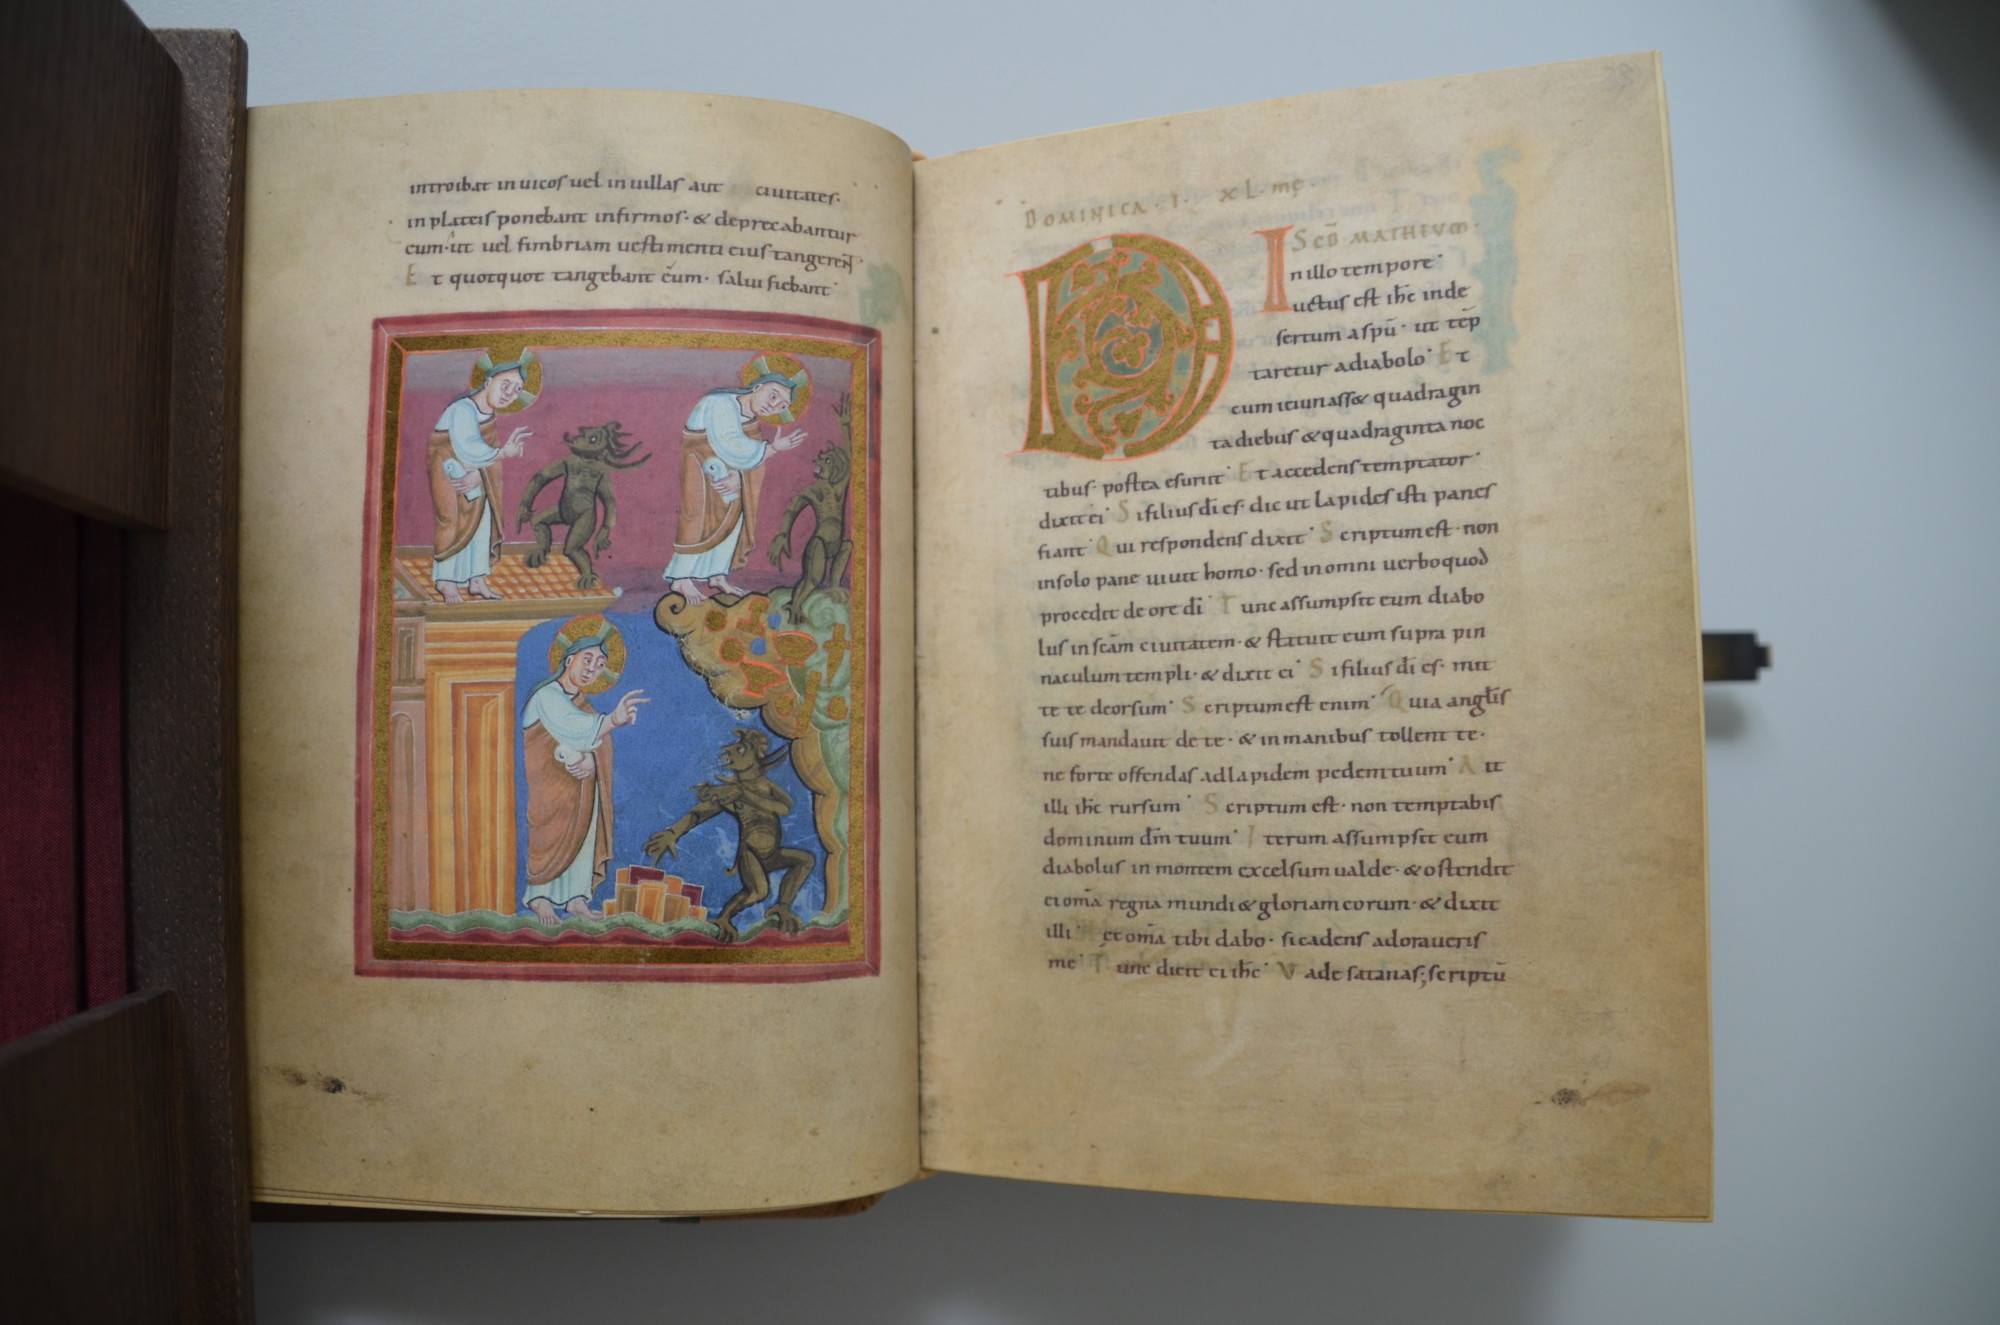 introibat in uicos uel in uillas aut ciuitates·
in plateis ponebant infirmos· & deprecabantur
eum· ut uel fimbriam uestimenti eius tangerent
Et quotquot tangebant eum· salui fiebant
DOMINICA · I · XL · mę
SCD MATHEVM·
In illo tempore
Ductus est ihc inde
sertum a spū· ut tēp
taretur a diabolo Et
cum ieiunass& quadragin
ta diebus & quadraginta noc
tibus· postea esuriit Et accedens temptator
dixit ei Si filius dī es· dic ut lapides isti panes
fiant Qui respondens dixit Scriptum est· non
in solo pane uiuit homo· sed in omni uerbo quod
procedit de ore dī Tunc assumpsit eum diabo
lus in scām ciuitatem· & statuit eum supra pin
naculum templi· & dixit ei Si filius dī es· mit
te te deorsum Scriptum est enim Quia anglis
suis mandauit de te· & in manibus tollent te·
ne forte offendas ad lapidem pedem tuum Ait
illi ihc rursum Scriptum est· non temptabis
dominum dm tuum Iterum assumpsit eum
diabolus in montem excelsum ualde· & ostendit
ei omā regna mundi & gloriam eorum· & dixit
illi et omā tibi dabo· si cadens adoraueris
me Tunc dicit ei ihc Vade satanas; scriptū